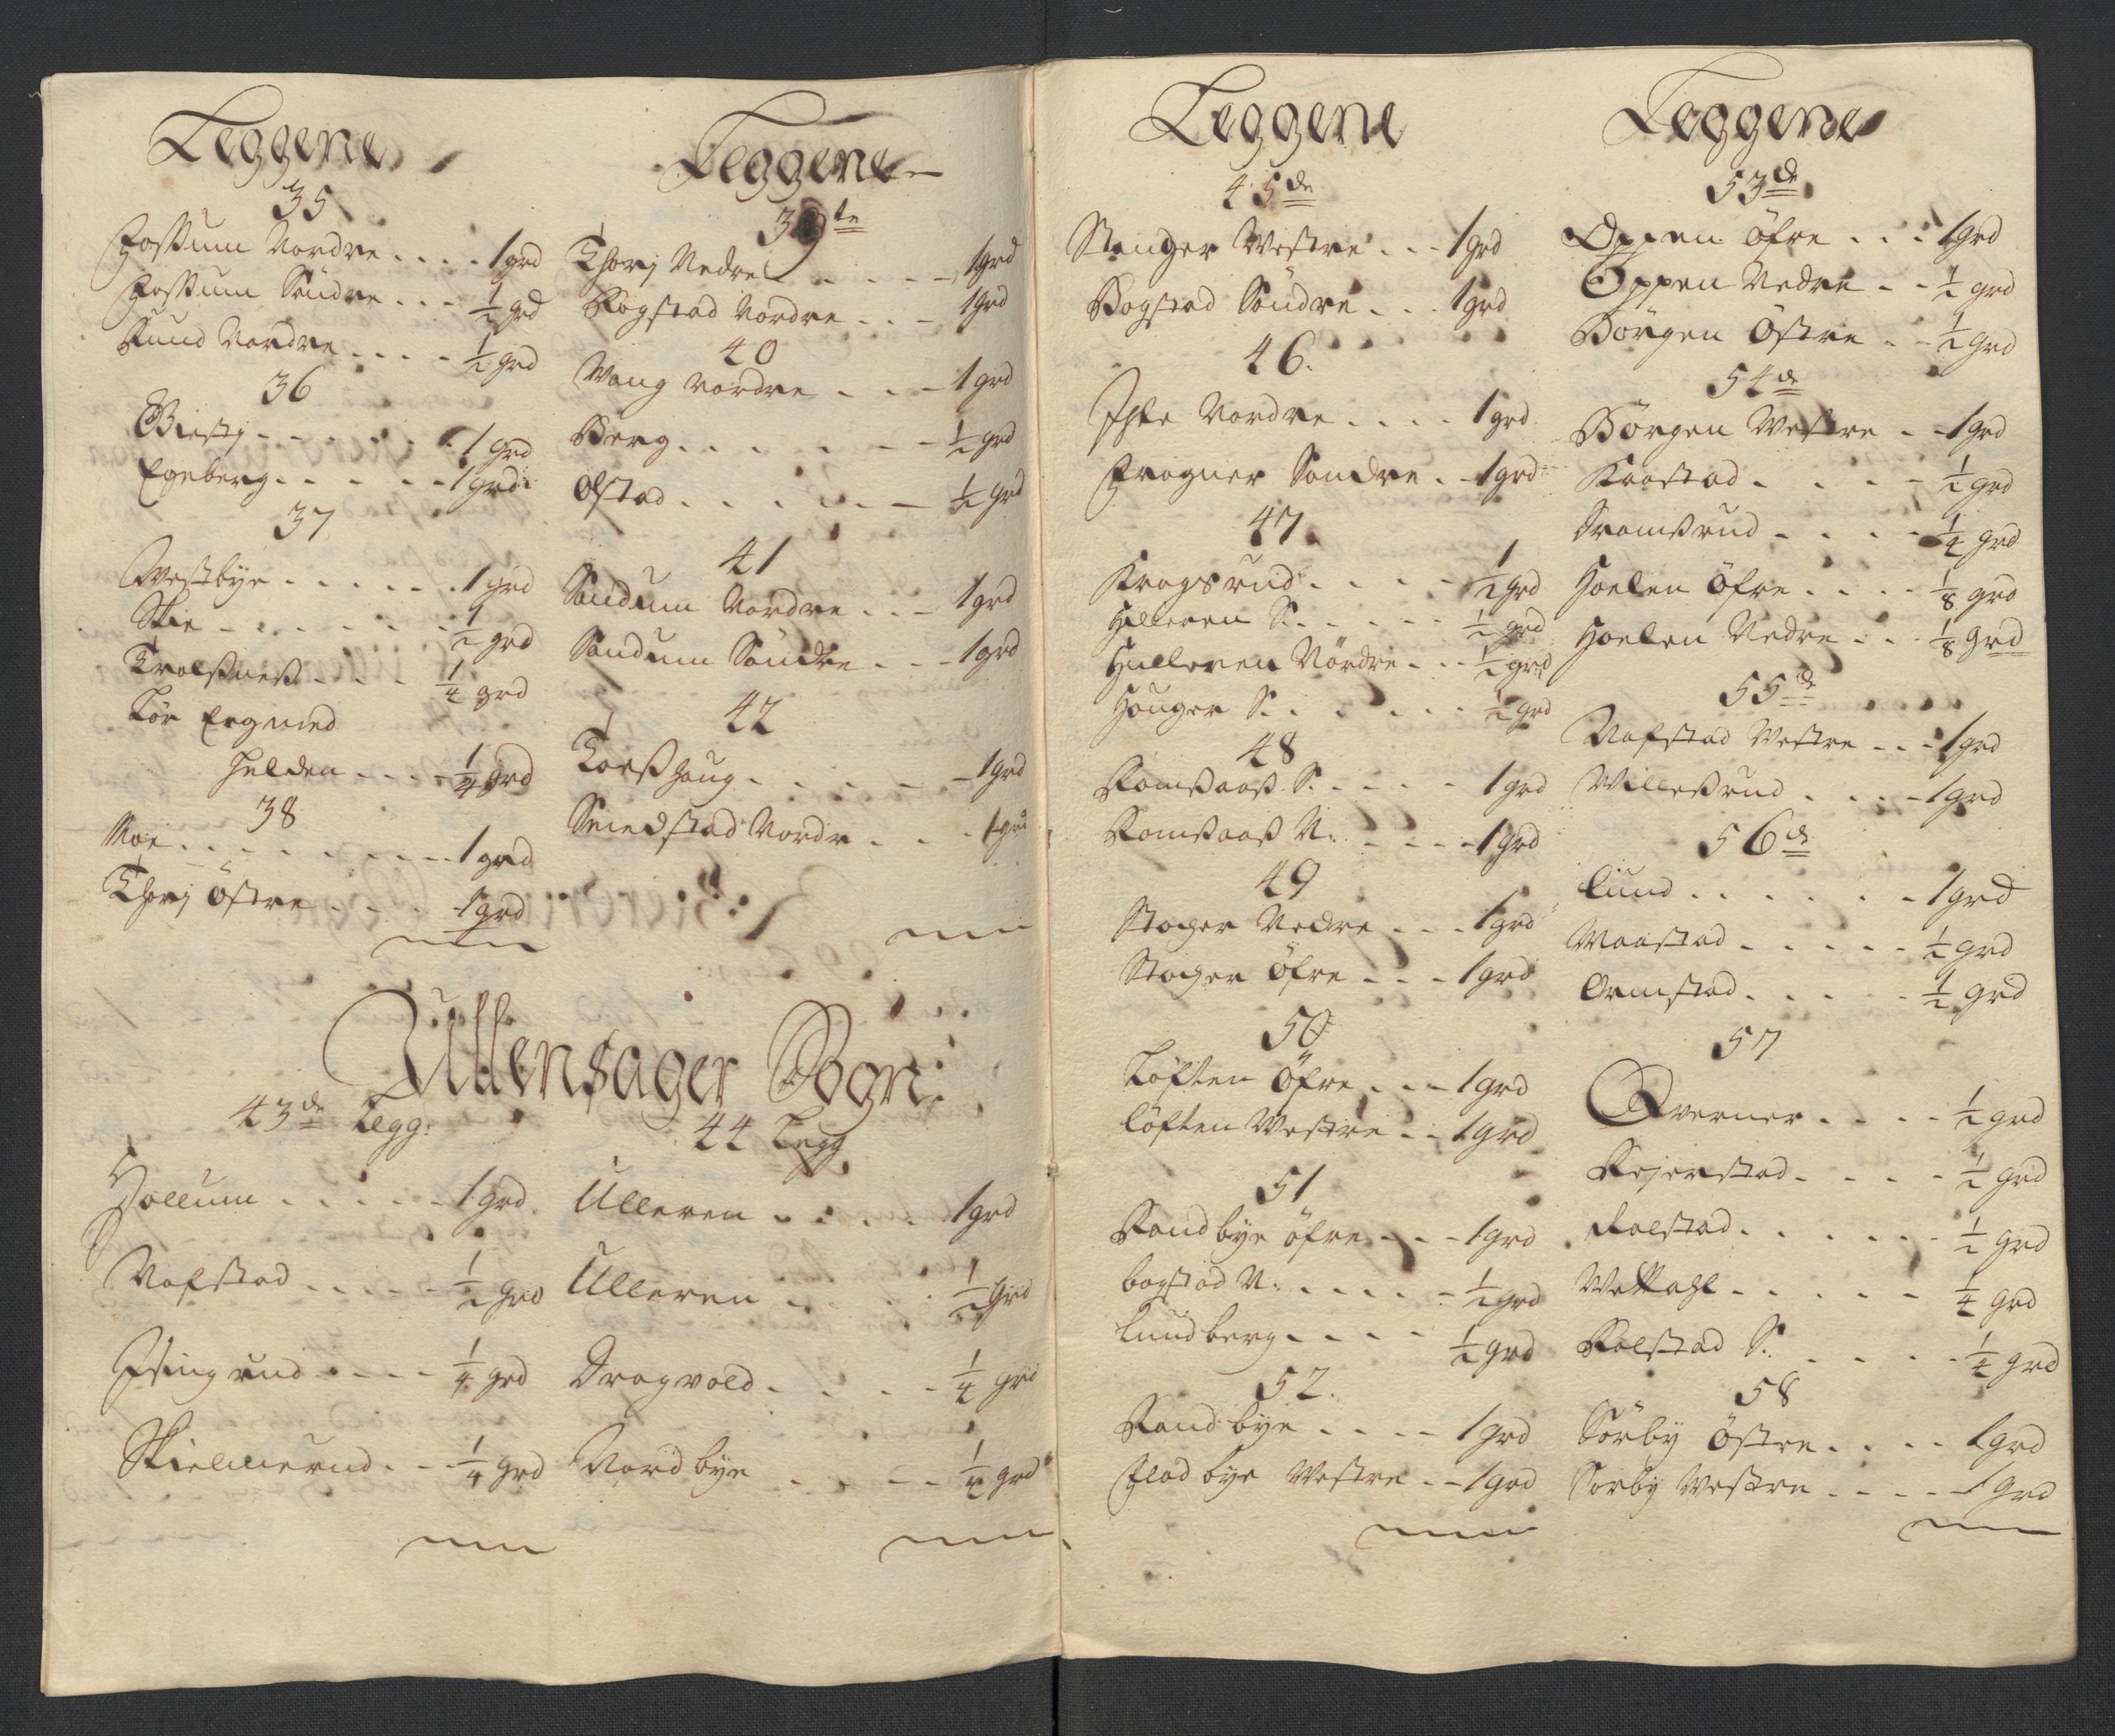 Leggene
35
Fossum Nordre .... 1 grd
Fossum Söndre ... ½ grd
Lund Nordre .... ½ grd
36
Giestj ...... 1 grd
Egeberg ...... 1 grd
37
Westbye ...... 1 grd
Skie ...... ½ grd
Trolsness .... ¼ grd
Lör Eng med
Helden .... ¼ grd
38
Moe ........ 1 grd
Thorj Östre .... 1 grd
Leggene
39te
Thorj Nedre ..... 1 grd
Rogstad Nordre ... 1 grd
40
Wang Nordre ... 1 grd
Berg ...... ½ grd
Olstad ...... ½ grd
41
Sandum Nordre ... 1 grd
Sandum Söndre ... 1 grd
42
Torsshoug ..... 1 grd
Smedstad Nordr ... 1 grd
Ullensager Sogn:
43de Legg:
Hollum ..... 1 grd
Nafstad ..... ½ grd
Ising rud .... ¼ grd
Skielmerud ... ¼ grd
44 Legg
Ulleren ..... 1 grd
Ulleren .... ½ grd
Dragvold .... ¼ grd
Nordbye .... ¼ grd
Leggene
45de
Stenger Westre ... 1 grd
Bogstad Söndre ... 1 grd
46.
Ihle Nordre .... 1 grd
Frogner Sondre .. 1 grd
47
Krogsrud .... ½ grd
Hilleren S. ..... ½ grd
Hulleren Nördre ... ½ grd
Houger S. ..... ½ grd
48
Romsaas S. .... 1 grd
Romsaas N. .... 1 grd
49
Stager Nedre ... 1 grd
Stager Öfre ... 1 grd
50
Löften Öfre ... 1 grd
Löften Westre .. 1 grd
51
Randbye öfre ... 1 grd
bogstad N. ..... ½ grd
Lundberg .... ½ grd
52.
Randbye .... 1 grd
Fladbye Westre .. 1 grd
Leggene
53de
Oppen öfre ... 1 grd
Oppen Nedre .. ½ grd
Börgen Östre .. ½ grd
54de
Börgen Westre .. 1 grd
Kaastad .... ½ grd
Tromsrud .... ¼ grd
Hoelen Öfre .... ⅛ grd
Hoelen Nedre ... ⅛ grd
55de
Nafstad Westre ... 1 grd
Willessrud .... 1 grd
56de
Lund ...... 1 grd
Waastad ..... ½ grd
Ormstad ..... ½ grd
57
Qverner .... ½ grd
Rejerstad .... ½ grd
Kolstad ...... ½ grd
..... ¼ grd
Kolstad S. .... ¼ grd
58
Sörby Östre .... 1 grd
Sörby Westre .... 1 grd